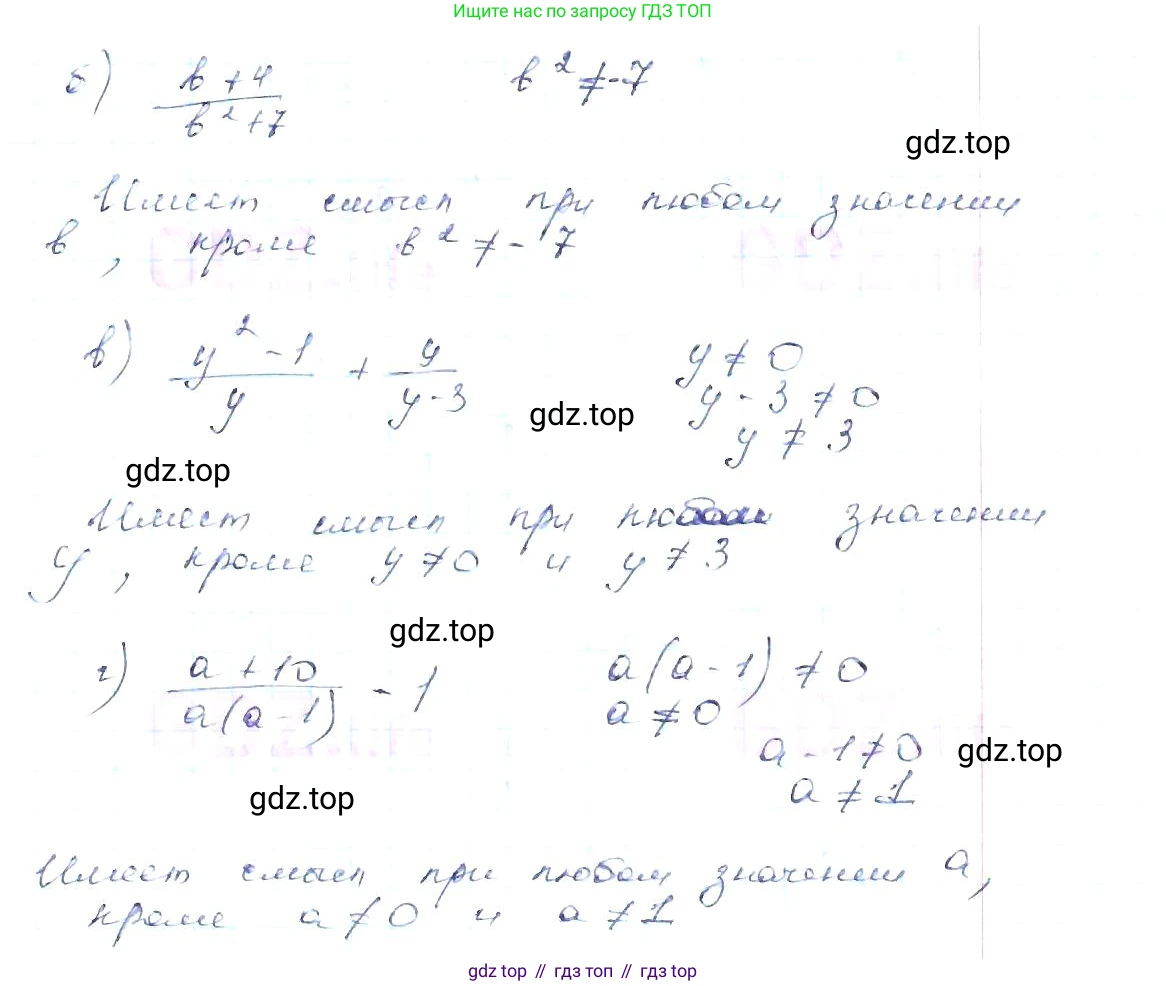 Ищите нас по запросу ГДЗ ТОП
б) (b + 4)/(b² + 7) b² ≠ -7
gdz.top
Имеет смысл при любом значении
b, кроме b² ≠ - 7
в) (y² - 1)/y + y/(y - 3) y ≠ 0
y - 3 ≠ 0
gdz.top
y ≠ 3
gdz.top
Имеет смысл при любом значении
y, кроме y ≠ 0 и y ≠ 3
gdz.top
г) (a + 10)/(a(a - 1)) - 1 a(a - 1) ≠ 0
a ≠ 0
a - 1 ≠ 0
gdz.top
a ≠ 1
gdz.top
Имеет смысл при любом значении a,
кроме a ≠ 0 и a ≠ 1
gdz top // гдз топ // гдз top